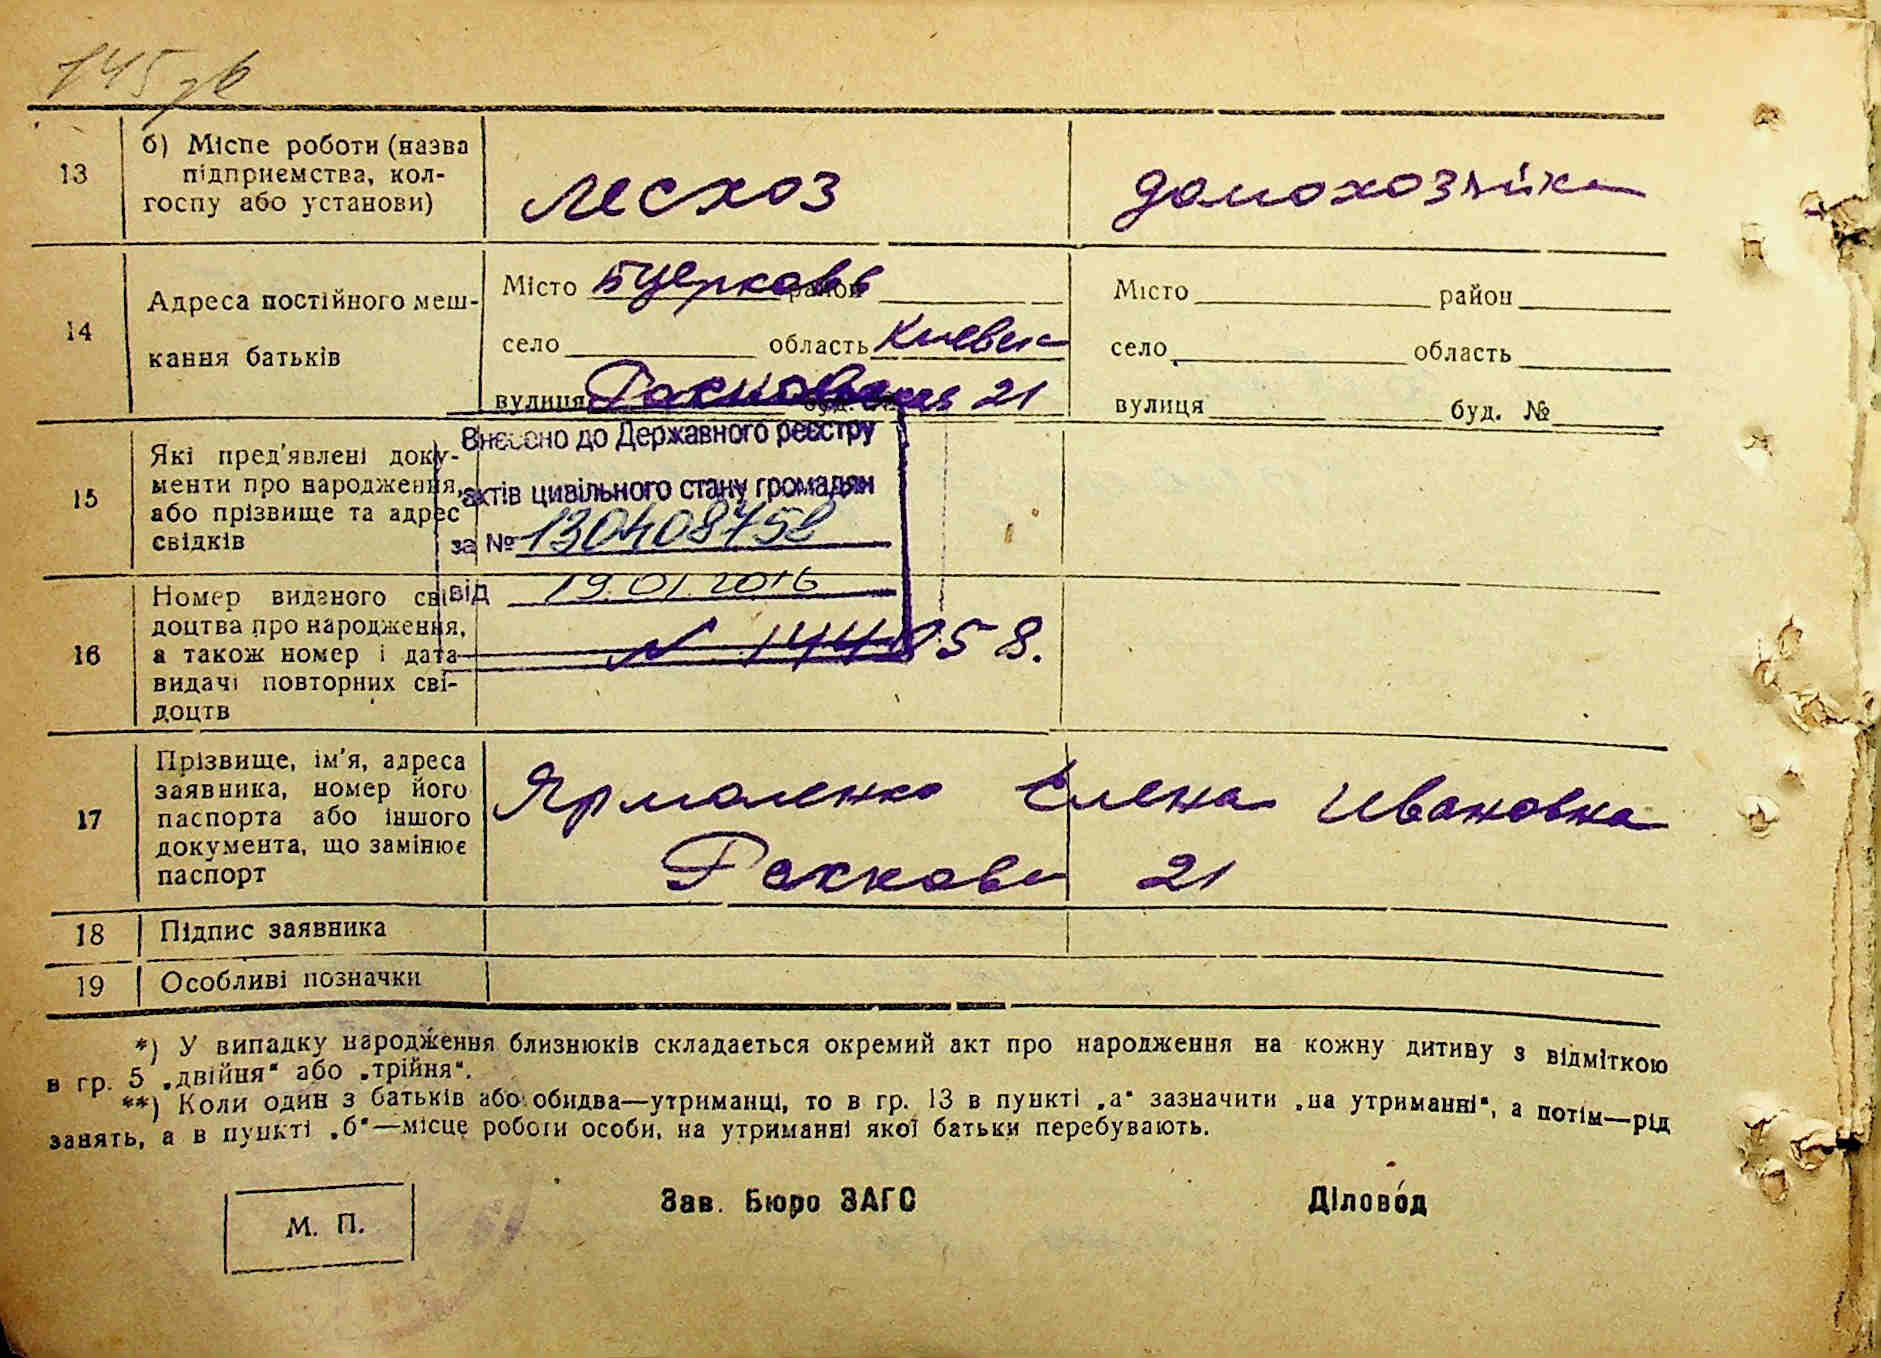 145 зв
13
б) Місце роботи (назва
підприємства, кол-
госпу або установи)
лесхоз
домохозяйка
14
Адреса постійного меш-
кання батьків
Місто Бцерковь район
село область Киевск
вулиця буд. № 21
Місто район
село область
вулиця буд. №
15
Які пред'явлені доку-
менти про народження,
або прізвище та адрес
свідків
Внесено до Державного реєстру
актів цивільного стану громадян
за № 130408758
від 19.01.2016
16
Номер виданого сві-
доцтва про народження,
а також номер і дата
видачі повторних сві-
доцтв
N 144858.
17
Прізвище, ім'я, адреса
заявника, номер його
паспорта або іншого
документа, що замінює
паспорт
Ярмоленко Елена Ивановна
21
18
Підпис заявника
19
Особливі позначки
*) У випадку народження близнюків складається окремий акт про народження на кожну дитину з відміткою
в гр. 5 „двійня" або „трійня".
**) Коли один з батьків або обидва—утриманці, то в гр. 13 в пункті „а" зазначити „на утриманні", а потім—рід
занять, а в пункті „б"—місце роботи особи, на утриманні якої батьки перебувають.
М. П.
Зав. Бюро ЗАГС
Діловод